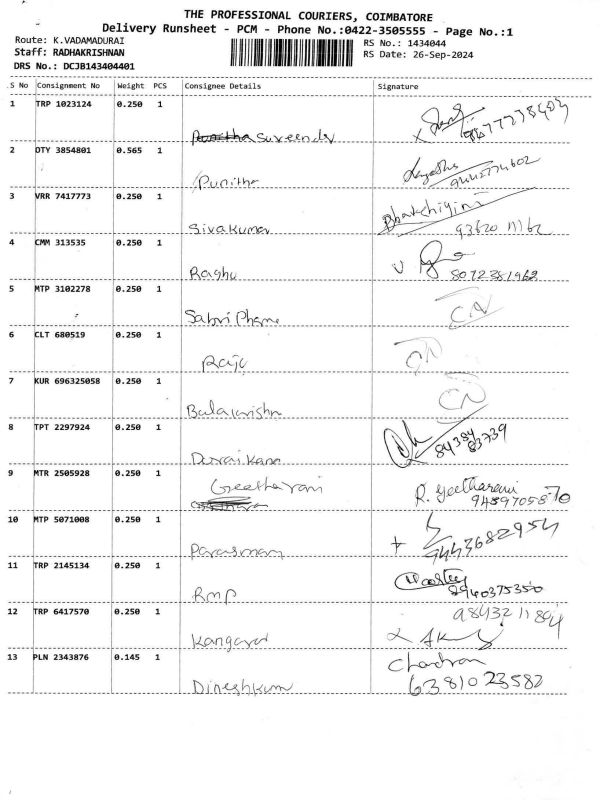 THE PROFESSIONAL COURIERS, COIMBATORE
Delivery Runsheet - PCM - Phone No.:0422-3505555 - Page No.:1
Route: K.VADAMADURAI RS No.: 1434044
Staff: RADHAKRISHNAN RS Date: 26-Sep-2024
DRS No.: DCJB143404401
S No Consignment No Weight PCS Consignee Details Signature
1 TRP 1023124 0.250 1
2 DTY 3854801 0.565 1
Punitha
3 VRR 7417773 0.250 1
Sivakumar 93620 11162
4 CMM 313535 0.250 1
Raghu 8072381962
5 MTP 3102278 0.250 1
CN
6 CLT 680519 0.250 1
Raju CN
7 KUR 696325058 0.250 1
CN
8 TPT 2297924 0.250 1
84384
83739
9 MTR 2505928 0.250 1
Geetharani R. Geetharani
9489705870
10 MTP 5071008 0.250 1
9443682954
11 TRP 2145134 0.250 1
RMP 8940375350
12 TRP 6417570 0.250 1
9843211894
13 PLN 2343876 0.145 1
Chandran
Dineshkum 6381023582